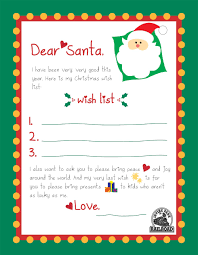 Dear Santa,
I have been very very good this
year. Here is my Christmas wish
list:
wish list
1.
2.
3.
I also want to ask you to please bring peace and joy
around the world. And my very last wish is for
you to please bring presents to kids who aren't
as lucky as me.
Love,
RAILROAD